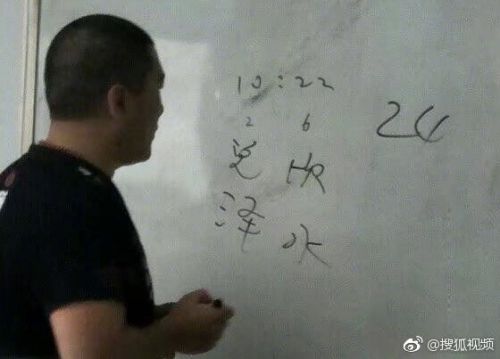 10:22
24
2 6
兑 坎
泽 水
@搜狐视频